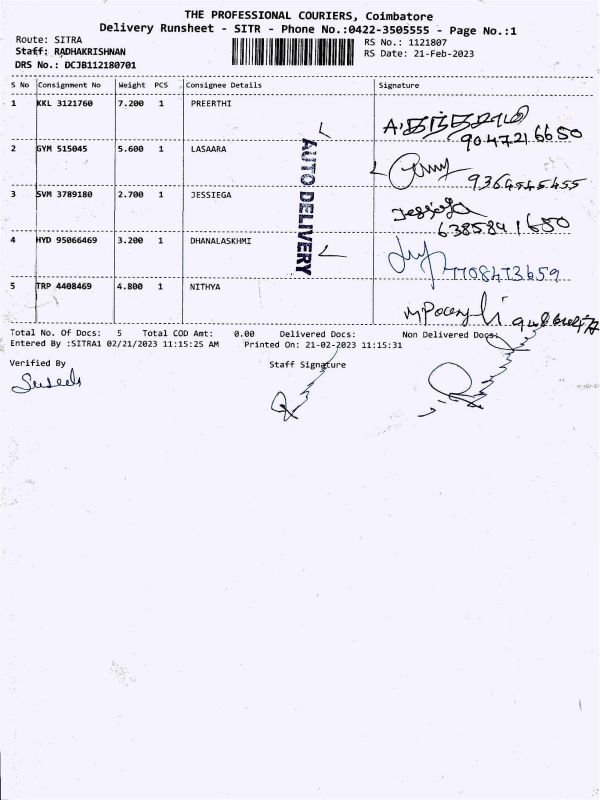 THE PROFESSIONAL COURIERS, Coimbatore
Delivery Runsheet - SITR - Phone No.:0422-3505555 - Page No.:1
Route: SITRA
RS No.: 1121807
Staff: RADHAKRISHNAN
RS Date: 21-Feb-2023
DRS No.: DCJB112180701
S No Consignment No Weight PCS Consignee Details Signature
1 KKL 3121760 7.200 1 PREERTHI
9047216650
2 GYM 515045 5.600 1 LASAARA
3 SVM 3789180 2.700 1 JESSIEGA
6385891650
4 HYD 95066469 3.200 1 DHANALASKHMI
7708473659
5 TRP 4408469 4.800 1 NITHYA
AUTO DELIVERY
Total No. Of Docs: 5 Total COD Amt: 0.00 Delivered Docs: Non Delivered Docs:
Entered By :SITRA1 02/21/2023 11:15:25 AM Printed On: 21-02-2023 11:15:31
Verified By Staff Signature